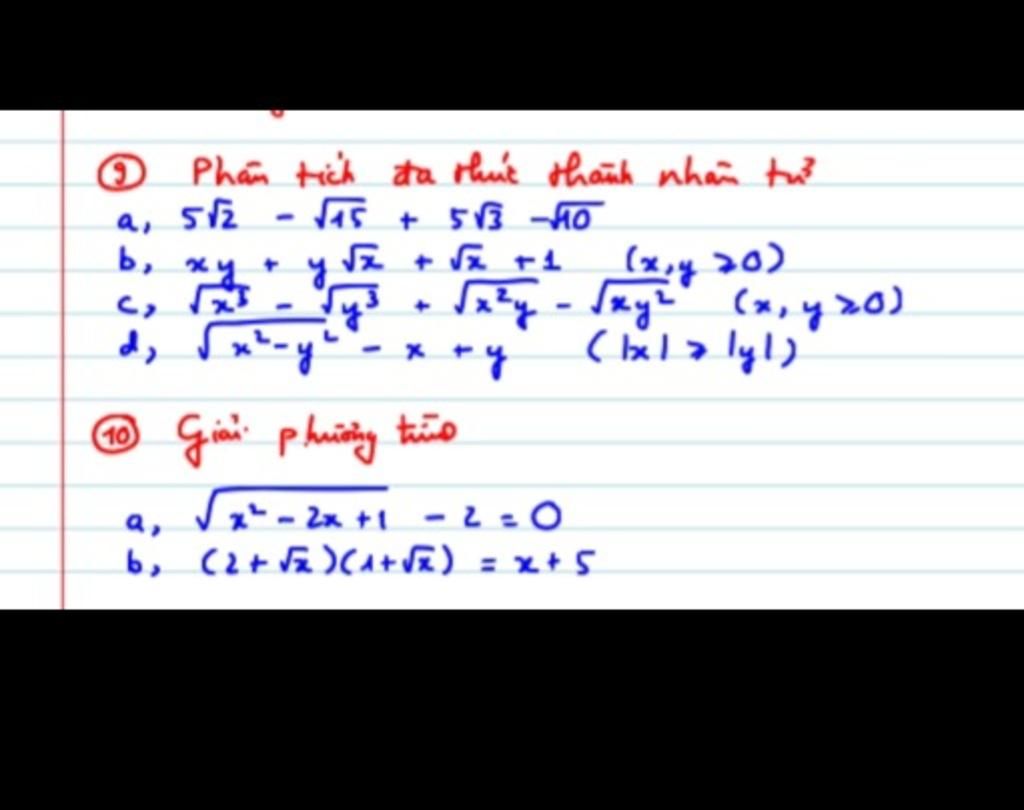 9 Phân tích đa thức thành nhân tử
a, 5√2 - √15 + 5√3 - √10
b, xy + y√x + √x + 1 (x, y ≥ 0)
c, √x³ - √y³ + √x²y - √xy² (x, y ≥ 0)
d, √x² - y² - x + y (|x| > |y|)
10 Giải phương trình
a, √x² - 2x + 1 - 2 = 0
b, (2 + √x)(1 + √x) = x + 5